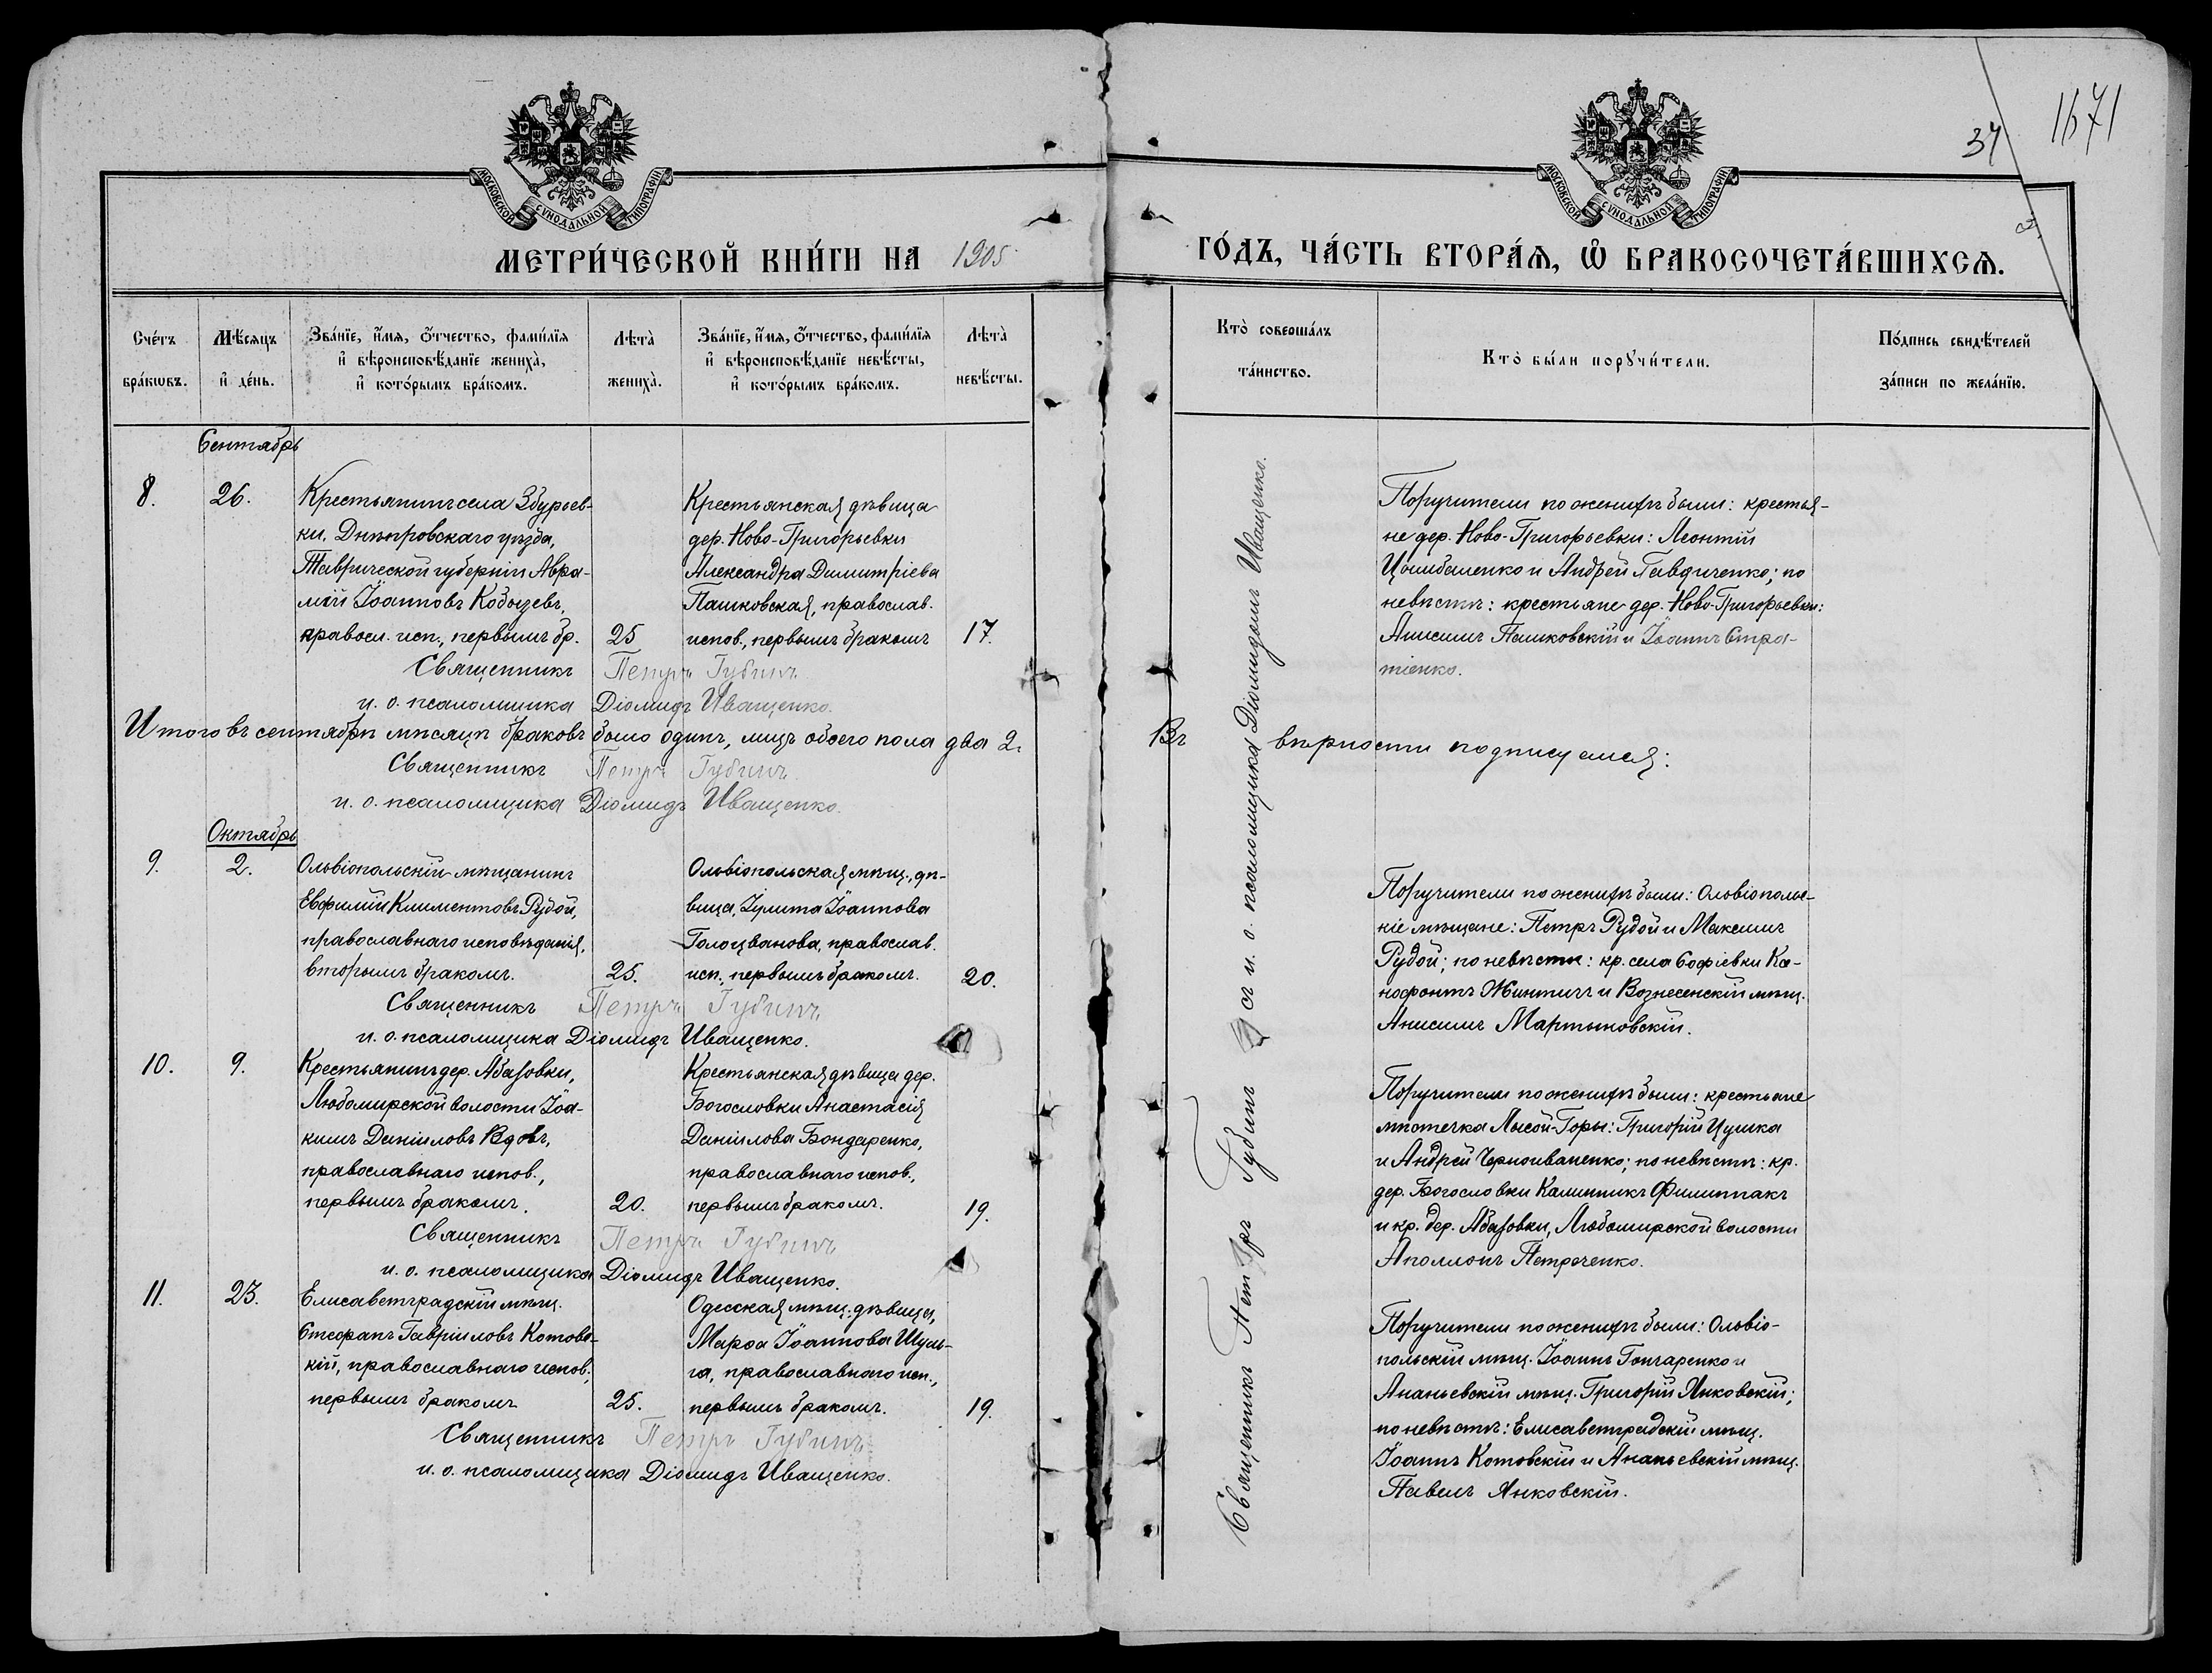 1671
37
МОСКОВСКОЙ СѴНОДАЛЬНОЙ ТИПОГРАФІИ
МОСКОВСКОЙ СѴНОДАЛЬНОЙ ТИПОГРАФІИ
МЕТРИ́ЧЕСКОЙ КНИ́ГИ НА 1905
ГО́ДЪ, ЧА́СТЬ ВТОРА́Ѧ, Ѽ БРАКОСОЧЕТА́ВШИХСѦ.
Сче́тъ бра́кѡвъ.
Мѣ́сяцъ и҆ де́нь.
Зва́нїе, и҆́мя, ѻ҆́тчество, фами́лїя
и҆ вѣроисповѣ́данїе жениха̀,
и҆ кото́рымъ бра́комъ.
Лѣта̀ жениха̀.
Зва́нїе, и҆́мя, ѻ҆́тчество, фами́лїя
и҆ вѣроисповѣ́данїе невѣ́сты,
и҆ кото́рымъ бра́комъ.
Лѣта̀ невѣ́сты.
Кто̀ соверша́лъ та́инство.
Кто̀ бы́ли порꙋчи́тели.
По́дпись свидѣ́телей за́писи по жела́нїю.
Сентябрь
8. 26.
Крестьянинъ села Збурьев-
ки, Днѣпровскаго уѣзда,
Таврической губерніи Авра-
мій Іоанновъ Кобызевъ,
правосл. исп., первымъ бр. 25
Крестьянская дѣвица
дер. Ново-Григорьевки
Александра Димитріева
Пашковская, православ.
испов., первымъ бракомъ 17.
Поручители по женихѣ были: крестья-
не дер. Ново-Григорьевки: Леонтій
Цымбаленко и Андрей Гавдиченко; по
невѣстѣ: крестьяне дер. Ново-Григорьевки:
Анисимъ Пашковскій и Іоаннъ Стра-
тіенко.
Священникъ Петръ Губинъ
и. о. псаломщика Діомидъ Иващенко.
Итого въ сентябрѣ мѣсяцѣ браковъ было одинъ, лицъ обоего пола два 2.
Въ вѣрности подписуемся:
Священникъ Петръ Губинъ
и. о. псаломщика Діомидъ Иващенко.
Октябрь
9. 2.
Ольвіопольскій мѣщанинъ
Евфимій Климентовъ Рудой,
православнаго исповѣданія,
вторымъ бракомъ. 25.
Ольвіопольская мѣщ., дѣ-
вица, Іулита Іоаннова
Голоцванова, православ.
исп., первымъ бракомъ. 20.
Поручители по женихѣ были: Ольвіопольс-
кіе мѣщане: Петръ Рудой и Максимъ
Рудой; по невѣстѣ: кр. села Софіевки Ке-
нофонтъ Жинтичъ и Вознесенскій мѣщ.
Анисимъ Мартыновскій.
Священникъ Петръ Губинъ
и. о. псаломщика Діомидъ Иващенко.
10. 9.
Крестьянинъ дер. Абазовки,
Любомирской волости Іоа-
кимъ Даніиловъ Вдовъ,
православнаго испов.,
первымъ бракомъ. 20.
Крестьянская дѣвица дер.
Богословки Анастасія
Даніилова Бондаренко,
православнаго испов.,
первымъ бракомъ. 19.
Поручители по женихѣ были: крестьяне
мѣстечка Лысой-Горы: Григорій Цушка
и Андрей Черноиваненко; по невѣстѣ: кр.
дер. Богословки Калинникъ Филиппакъ
и кр. дер. Абазовки, Любомирской волости
Аполлонъ Петреченко.
Священникъ Петръ Губинъ
и. о. псаломщика Діомидъ Иващенко.
11. 23.
Елисаветградскій мѣщ.
Стефанъ Гавріиловъ Котовс-
кій, православнаго испов.,
первымъ бракомъ 25.
Одесская мѣщ. дѣвица,
Марѳа Іоаннова Шуль-
га, православнаго исп.,
первымъ бракомъ. 19.
Поручители по женихѣ были: Ольвіо-
польскій мѣщ. Іоаннъ Гончаренко и
Ананьевскій мѣщ. Григорій Янковскій;
по невѣстѣ: Елисаветградскій мѣщ.
Іоаннъ Котовскій и Ананьевскій мѣщ.
Павелъ Янковскій.
Священникъ Петръ Губинъ
и. о. псаломщика Діомидъ Иващенко.
Священникъ Петръ Губинъ съ и. о. псаломщика Діомидомъ Иващенко.